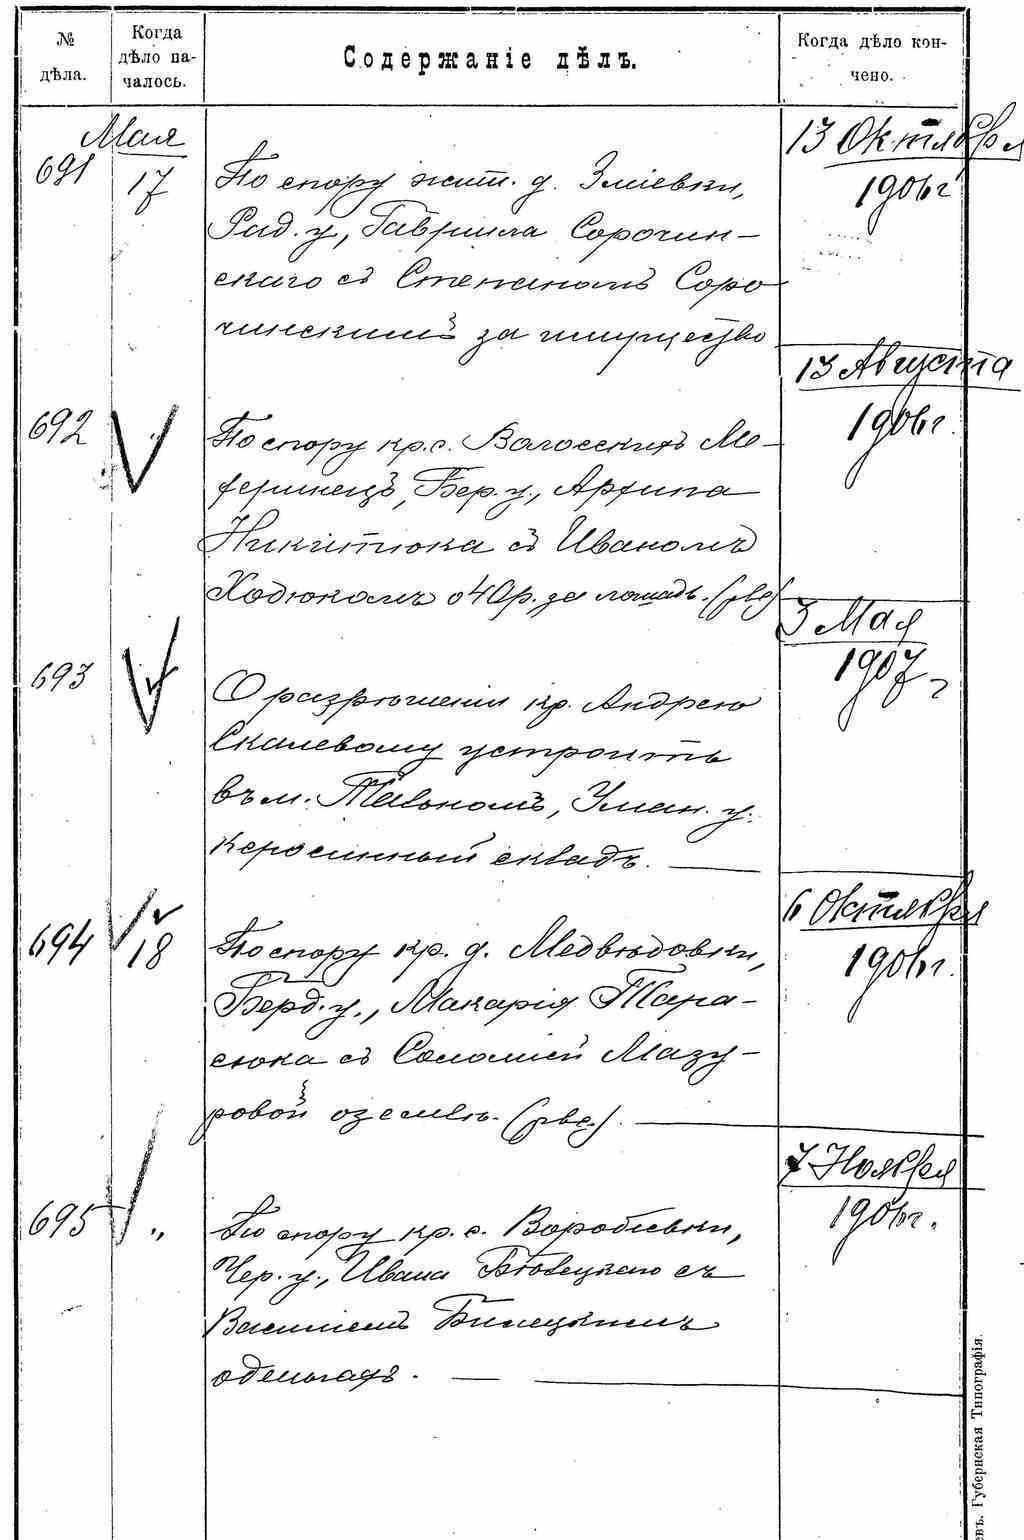 № дѣла.
Когда дѣло на-
чалось.
Содержаніе дѣлъ.
Когда дѣло кон-
чено.
Мая
691
17
По спору жит. д. Зміевки,
Рад. у., Гавриила Сорочин-
скаго съ Степаномъ Соро
чинскимъ за имущество
13 Октября
1906 г
692
По спору кр. с. Волосскихъ Мо-
геринецъ, Бер. у.,
Никитюка съ Иваномъ
Ходюкомъ о 40 р. за лошадь.
13 Августа
1906 г.
693
О разрѣшеніи кр. Андрею
Скалевому устроить
въ м. Тальномъ, Уман. у.
керосинный складъ.
3 Мая
1907 г
694
18
По спору кр. д. Медвѣдовки,
Берд. у., Макарія Тара-
сюка съ Соломіей Мазу-
ровой о землѣ.
6 Октября
1906 г.
695
"
По спору кр. с. Воробіевки,
Чер. у., Ивана Бѣлецкаго съ
Василіемъ Билецкимъ
о деньгахъ.
7 Ноября
1906 г.
евъ. Губернская Типографія.